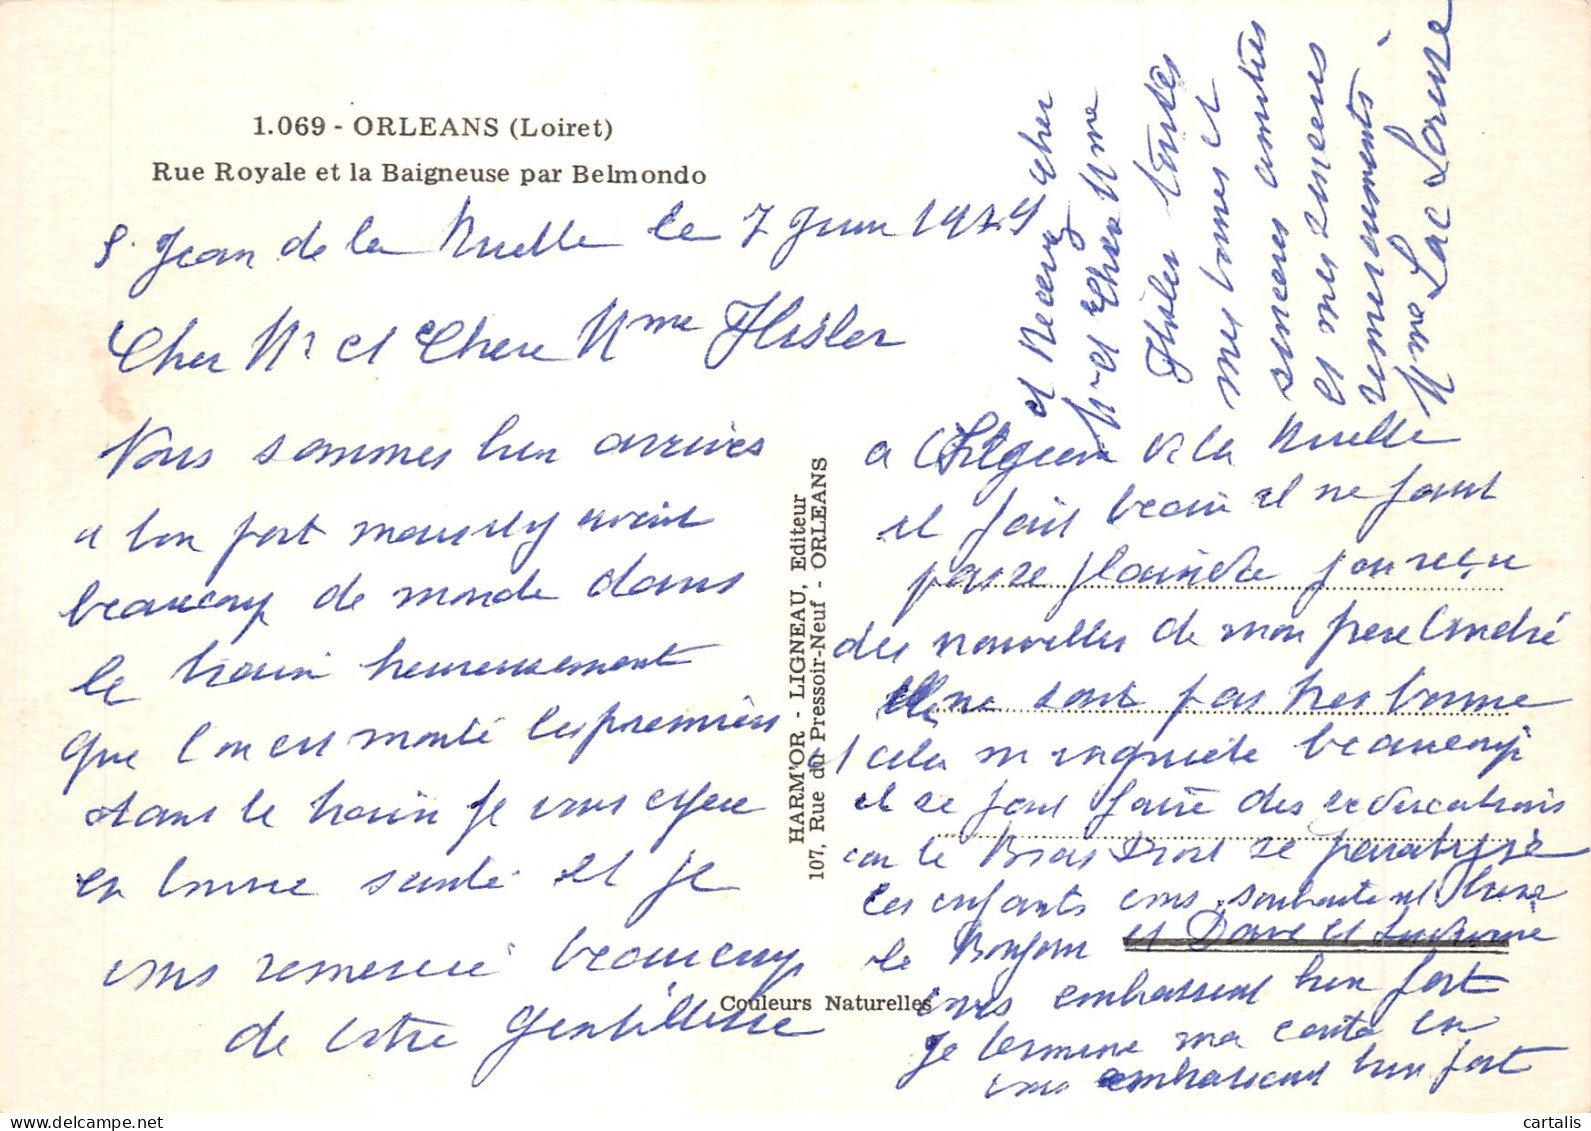 1.069 - ORLEANS (Loiret)
Rue Royale et la Baigneuse par Belmondo
S. Jean de la Ruelle le 7 Juin 19
Cher Mr et Chere Mme
Nous sommes bien arrivés
a bon port mais il y avait
beaucoup de monde dans
le train heureusement
que l'on est monté les premiers
dans le train je vous espere
en bonne santé et je
vous remercie beaucoup
de votre gentillesse
HARM'OR - LIGNEAU, Editeur
107, Rue du Pressoir-Neuf - ORLEANS
Couleurs Naturelles
a de la Ruelle
il fait beau il ne faut
pas se plaindre j'on reçue
des nouvelles de mon frere André
elle ne sont pas tres bonne
et cela m inquiete beaucoup
il se fait faire des
car le Bras Droit se paralyse
les enfants vous souhaitent bien
le Bonjour et Dave et
vous embrassent bien fort
Je termine ma carte en
vous embrassant bien fort
et Recevez cher
Mr et Chere Mme
toutes
mes bonnes et
sinceres amitiés
et mes sinceres
remerciements
Mme Lac Louise
cartalis